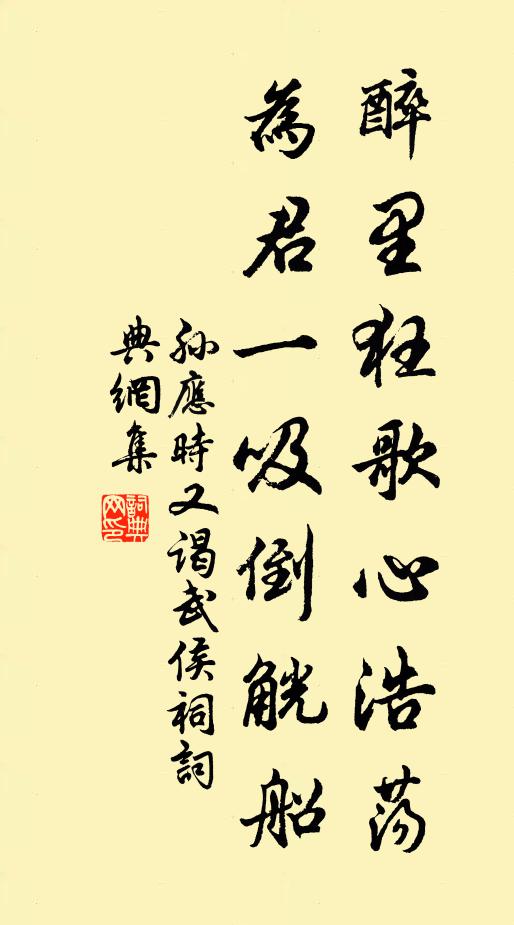 醉里狂歌心浩荡
為君一吸倒觥船
孫應時又謁武侯祠詞
典網集
詞典
网印